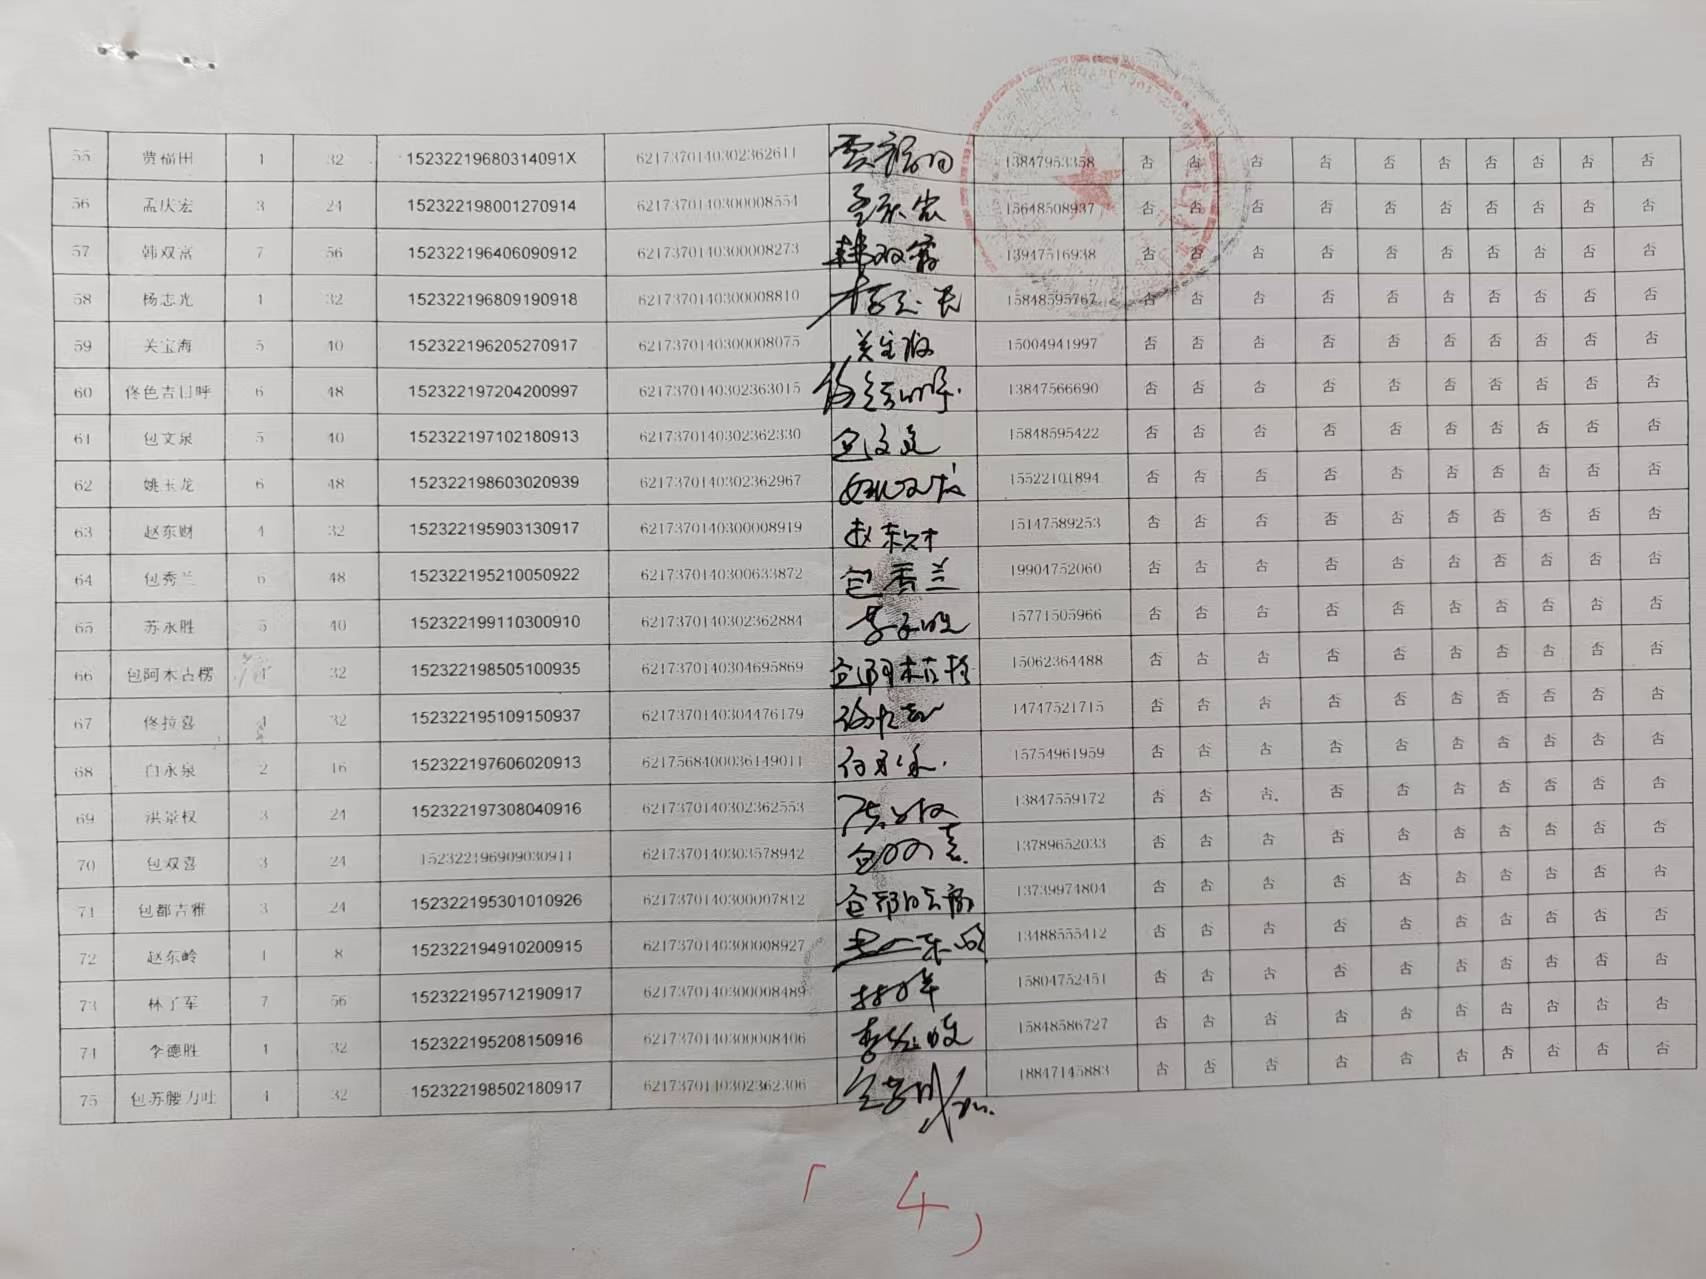 55 贾福田 4 32 15232219680314091X 6217370140302362611 贾福田 13847953358 否 否 否 否 否 否 否 否 否 否
56 孟庆宏 3 24 152322198001270914 6217370140300008554 孟庆宏 15648508937 否 否 否 否 否 否 否 否 否 否
57 韩双富 7 56 152322196406090912 6217370140300008273 韩双富 13947516938 否 否 否 否 否 否 否 否 否 否
58 杨志光 4 32 152322196809190918 6217370140300008810 15848595767 否 否 否 否 否 否 否 否 否 否
59 关宝海 5 40 152322196205270917 6217370140300008075 关宝海 15004941997 否 否 否 否 否 否 否 否 否 否
60 佟色吉日呼 6 48 152322197204200997 6217370140302363015 13847566690 否 否 否 否 否 否 否 否 否 否
61 包文泉 5 40 152322197102180913 6217370140302362330 包文泉 15848595422 否 否 否 否 否 否 否 否 否 否
62 姚玉龙 6 48 152322198603020939 6217370140302362967 姚玉龙 15522101894 否 否 否 否 否 否 否 否 否 否
63 赵东财 4 32 152322195903130917 6217370140300008919 赵东财 15147589253 否 否 否 否 否 否 否 否 否 否
64 包秀兰 6 48 152322195210050922 6217370140300633872 包秀兰 19904752060 否 否 否 否 否 否 否 否 否 否
65 苏永胜 5 40 152322199110300910 6217370140302362884 15771505966 否 否 否 否 否 否 否 否 否 否
66 包阿木古楞 4 32 152322198505100935 6217370140304695869 包阿木古楞 15062364488 否 否 否 否 否 否 否 否 否 否
67 佟拉喜 4 32 152322195109150937 6217370140304476179 佟拉喜 14747521715 否 否 否 否 否 否 否 否 否 否
68 白永泉 2 16 152322197606020913 6217568400036149011 白永泉 15754961959 否 否 否 否 否 否 否 否 否 否
69 洪景权 3 24 152322197308040916 6217370140302362553 13847559172 否 否 否 否 否 否 否 否 否 否
70 包双喜 3 24 152322196909030911 6217370140303578942 包双喜 13789652033 否 否 否 否 否 否 否 否 否 否
71 包都吉雅 3 24 152322195301010926 6217370140300007812 13739974804 否 否 否 否 否 否 否 否 否 否
72 赵东岭 1 8 152322194910200915 6217370140300008927 13488555412 否 否 否 否 否 否 否 否 否 否
73 林子军 7 56 152322195712190917 6217370140300008489 林子军 15804752451 否 否 否 否 否 否 否 否 否 否
74 李德胜 4 32 152322195208150916 6217370140300008406 李德胜 15848586727 否 否 否 否 否 否 否 否 否 否
75 包苏腰力吐 4 32 152322198502180917 6217370140302362306 18847145883 否 否 否 否 否 否 否 否 否 否
「 4 )